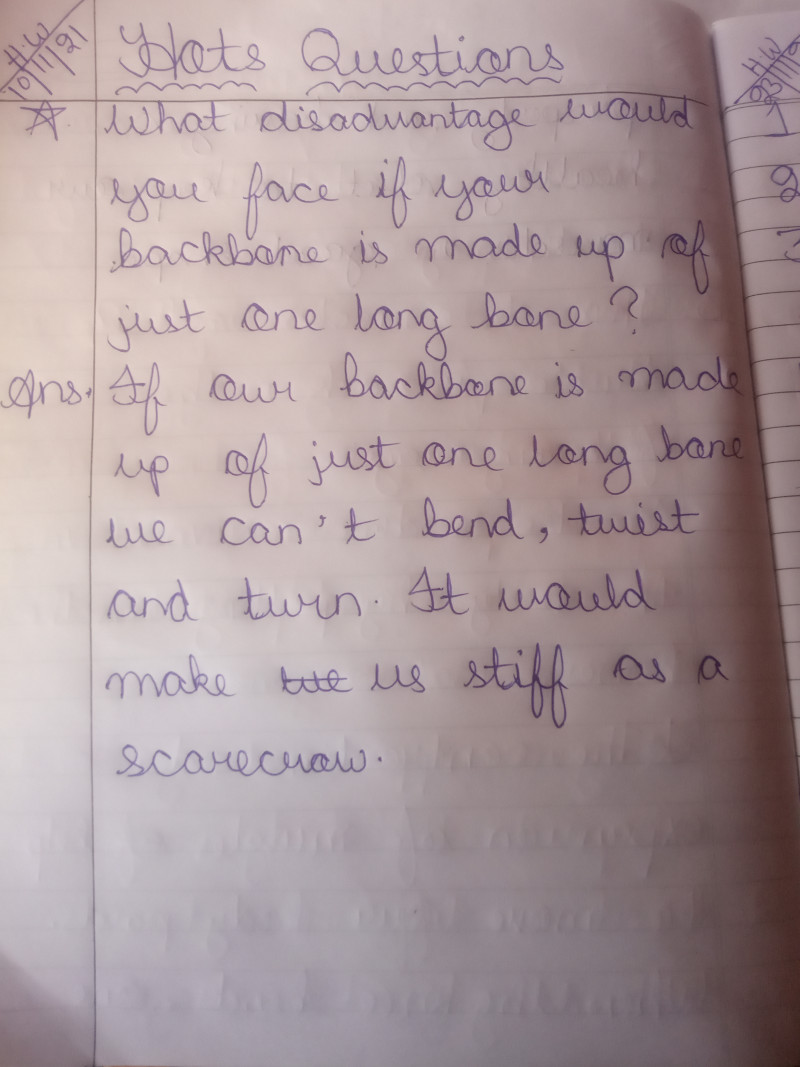 H.W
10/11/21
Hots Questions
What disadvantage would
you face if your
backbone is made up of
just one long bone?
Ans. If our backbone is made
up of just one long bone
we can't bend, twist
and turn. It would
make us stiff as a
scarecrow.
H.W
1
2
3